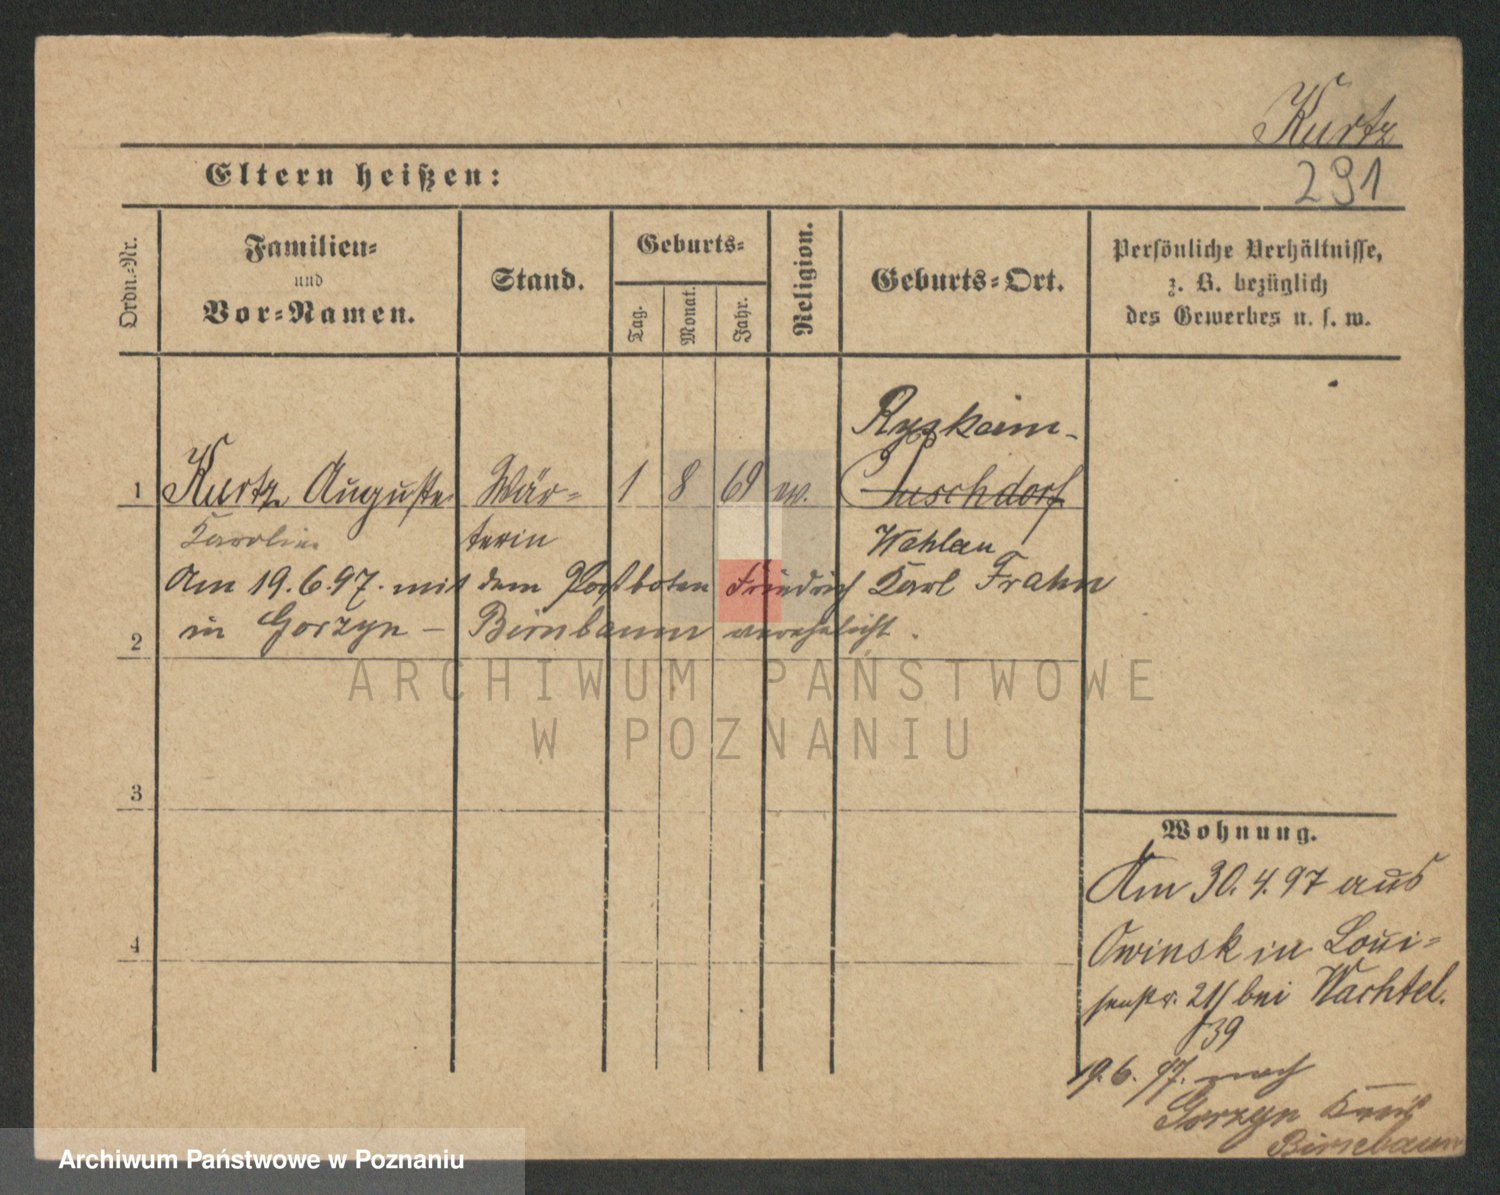 Kurtz
Eltern heißen:
291
Ordn.-Nr.
Familien-
und
Vor-Namen.
Stand.
Geburts-
Tag.
Monat.
Jahr.
Religion.
Geburts-Ort.
Persönliche Verhältnisse,
z. B. bezüglich
des Gewerbes u. s. w.
1 Kurtz Auguste Wär= 1 8 69 ev.
Karolin terin Wehlau
Am 19.6.97. mit dem Postboten Friedrich Karl Frahn
2 in Gorzyn – Birnbaum verehelicht.
3
4
Wohnung.
Am 30.4.97 aus
Owinsk in Loui=
senstr. 21/ bei Wachtel.
39
19.6.97. nach
Gorzyn Kreis
Birnbaum
ARCHIWUM PAŃSTWOWE
W POZNANIU
Archiwum Państwowe w Poznaniu